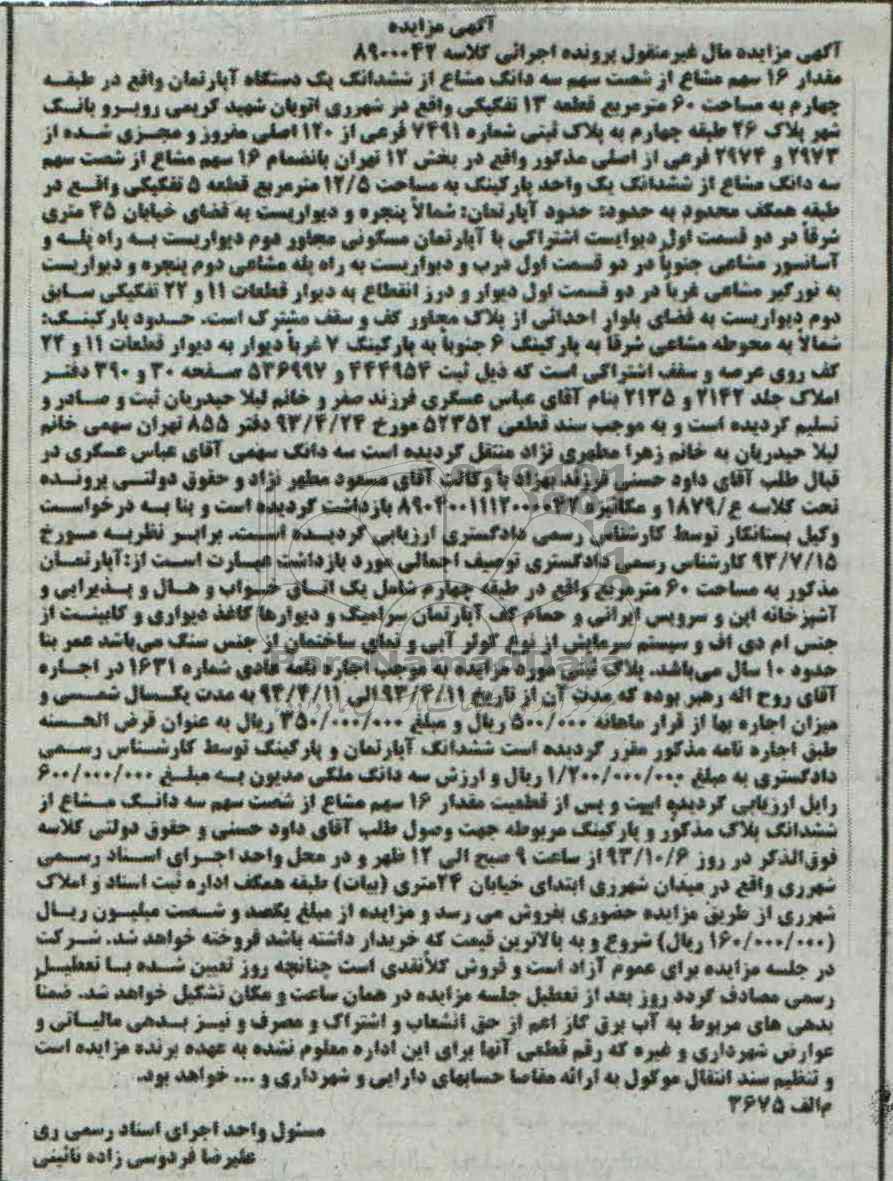 آگهی مزایده
آگهی مزایده مال غیرمنقول پرونده اجرائی کلاسه ۸۹۰۰۰۴۲
مقدار ۱۶ سهم مشاع از شصت سهم سه دانگ مشاع از ششدانگ یک دستگاه آپارتمان واقع در طبقه
چهارم به مساحت ۶۰ مترمربع قطعه ۱۳ تفکیکی واقع در شهرری اتوبان شهید کریمی روبرو بانک
شهر پلاک ۲۶ طبقه چهارم به پلاک ثبتی شماره ۷۴۹۱ فرعی از ۱۲۰ اصلی مفروز و مجزی شده از
۲۹۷۳ و ۲۹۷۴ فرعی از اصلی مذکور واقع در بخش ۱۲ تهران بانضمام ۱۶ سهم مشاع از شصت سهم
سه دانگ مشاع از ششدانگ یک واحد پارکینگ به مساحت ۱۲/۵ مترمربع قطعه ۵ تفکیکی واقع در
طبقه همکف محدود به حدود: حدود آپارتمان: شمالاً پنجره و دیواریست به فضای خیابان ۴۵ متری
شرقاً در دو قسمت اول دیوایست اشتراکی با آپارتمان مسکونی مجاور دوم دیواریست به راه پله و
آسانسور مشاعی جنوباً در دو قسمت اول درب و دیواریست به راه پله مشاعی دوم پنجره و دیواریست
به نورگیر مشاعی غرباً در دو قسمت اول دیوار و درز انقطاع به دیوار قطعات ۱۱ و ۲۲ تفکیکی سابق
دوم دیواریست به فضای بلوار احداثی از پلاک مجاور کف و سقف مشترک است. حدود پارکینگ:
شمالاً به محوطه مشاعی شرقاً به پارکینگ ۶ جنوباً به پارکینگ ۷ غرباً دیوار به دیوار قطعات ۱۱ و ۲۲
کف روی عرصه و سقف اشتراکی است که ذیل ثبت ۴۴۴۹۵۴ و ۵۳۶۹۹۷ صفحه ۳۰ و ۳۹۰ دفتر
املاک جلد ۲۱۴۲ و ۲۱۳۵ بنام آقای عباس عسکری فرزند صفر و خانم لیلا حیدریان ثبت و صادر و
تسلیم گردیده است و به موجب سند قطعی ۵۲۳۵۲ مورخ ۹۳/۴/۲۴ دفتر ۸۵۵ تهران سهمی خانم
لیلا حیدریان به خانم زهرا مطهری نژاد منتقل گردیده است سه دانگ سهمی آقای عباس عسکری در
قبال طلب آقای داود حسنی فرزند بهزاد با وکالت آقای مسعود مطهر نژاد و حقوق دولتی پرونده
تحت کلاسه ع/۱۸۷۹ و مکانیزه ۸۹۰۴۰۰۱۱۱۲۰۰۰۰۴۲ بازداشت گردیده است و بنا به درخواست
وکیل بستانکار توسط کارشناس رسمی دادگستری ارزیابی گردیده است. برابر نظریه مورخ
۹۳/۷/۱۵ کارشناس رسمی دادگستری توصیف اجمالی مورد بازداشت عبارت است از:آپارتمان
مذکور به مساحت ۶۰ مترمربع واقع در طبقه چهارم شامل یک اتاق خواب و هال و پذیرایی و
آشپزخانه اپن و سرویس ایرانی و حمام کف آپارتمان سرامیک و دیوارها کاغذ دیواری و کابینت از
جنس ام دی اف و سیستم سرمایش از نوع کولر آبی و نمای ساختمان از جنس سنگ می‌باشد عمر بنا
حدود ۱۰ سال می‌باشد. پلاک ثبتی مورد مزایده به موجب اجاره نامه عادی شماره ۱۶۳۱ در اجاره
آقای روح اله رهبر بوده که مدت آن از تاریخ ۹۳/۴/۱۱ الی ۹۴/۴/۱۱ به مدت یکسال شمسی و
میزان اجاره بها از قرار ماهانه ۵۰۰/۰۰۰ ریال و مبلغ ۳۵۰/۰۰۰/۰۰۰ ریال به عنوان قرض الحسنه
طبق اجاره نامه مذکور مقرر گردیده است ششدانگ آپارتمان و پارکینگ توسط کارشناس رسمی
دادگستری به مبلغ ۱/۲۰۰/۰۰۰/۰۰۰ ریال و ارزش سه دانگ ملکی مدیون به مبلغ ۶۰۰/۰۰۰/۰۰۰
رایل ارزیابی گردیده است و پس از قطعیت مقدار ۱۶ سهم مشاع از شصت سهم سه دانگ مشاع از
ششدانگ پلاک مذکور و پارکینگ مربوطه جهت وصول طلب آقای داود حسنی و حقوق دولتی کلاسه
فوق‌الذکر در روز ۹۳/۱۰/۶ از ساعت ۹ صبح الی ۱۲ ظهر و در محل واحد اجرای اسناد رسمی
شهرری واقع در میدان شهرری ابتدای خیابان ۲۴متری (بیات) طبقه همکف اداره ثبت اسناد و املاک
شهرری از طریق مزایده حضوری بفروش می رسد و مزایده از مبلغ یکصد و شصت میلیون ریال
(۱۶۰/۰۰۰/۰۰۰ ریال) شروع و به بالاترین قیمت که خریدار داشته باشد فروخته خواهد شد. شرکت
در جلسه مزایده برای عموم آزاد است و فروش کلاًنقدی است چنانچه روز تعیین شده با تعطیل
رسمی مصادف گردد روز بعد از تعطیل جلسه مزایده در همان ساعت و مکان تشکیل خواهد شد. ضمناً
بدهی های مربوط به آب برق گاز اعم از حق انشعاب و اشتراک و مصرف و نیز بدهی مالیاتی و
عوارض شهرداری و غیره که رقم قطعی آنها برای این اداره معلوم نشده به عهده برنده مزایده است
و تنظیم سند انتقال موکول به ارائه مفاصا حسابهای دارایی و شهرداری و ... خواهد بود.
م‌الف ۳۶۷۵
مسئول واحد اجرای اسناد رسمی ری
علیرضا فردوسی زاده نائینی